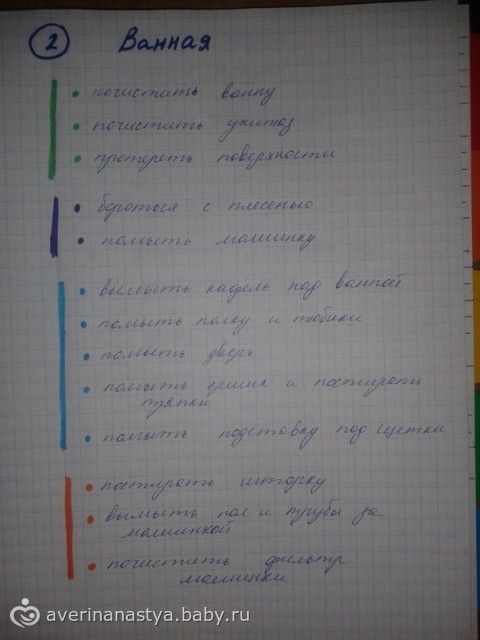 2 Ванная
почистить ванну
почистить унитаз
протереть поверхности
бороться с плесенью
помыть машинку
вымыть кафель над ванной
помыть полку и тюбики
помыть дверь
помыть ершик и постирать
тряпки
помыть подставку под щетки
постирать шторку
вымыть пол и трубы за
машинкой
почистить фильтр
машинки
averinanastya.baby.ru